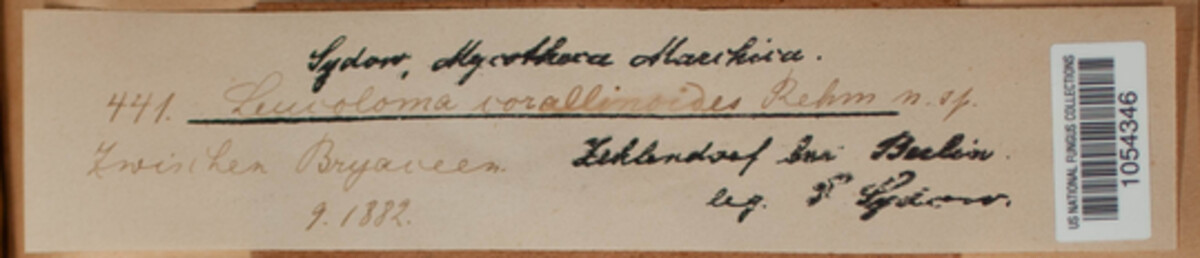 Sydow, Mycotheca Marchica.
441. Leucoloma corallinoides Rehm n. sp.
Zwischen Bryaceen. Zehlendorf bei Berlin.
9. 1882. leg. P. Sydow.
US NATIONAL FUNGUS COLLECTIONS
1054346